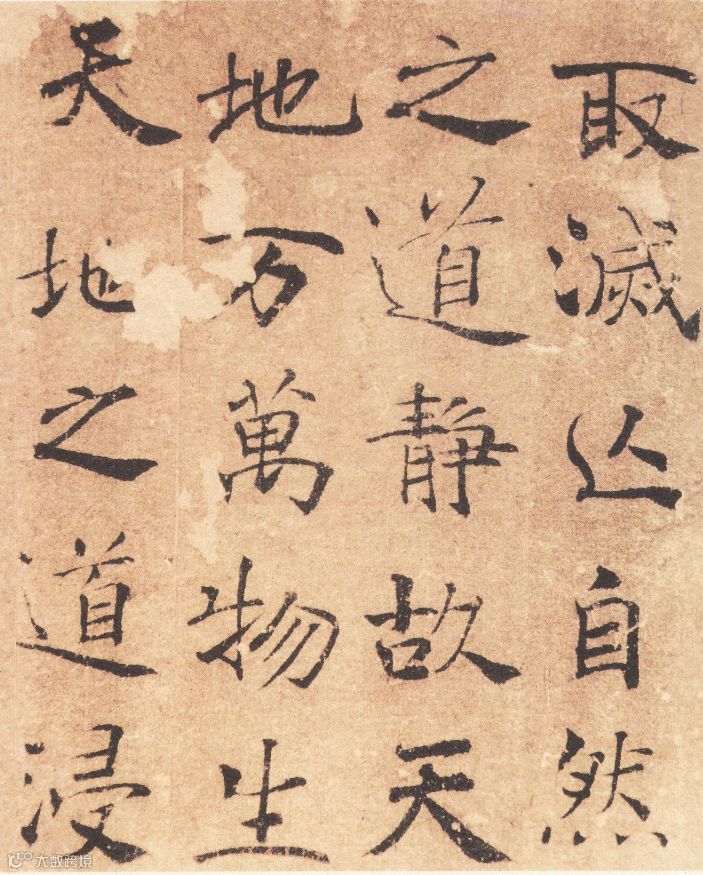 取滅亾自然
之道静故天
地万萬物生
天地之道浸
大数跨境